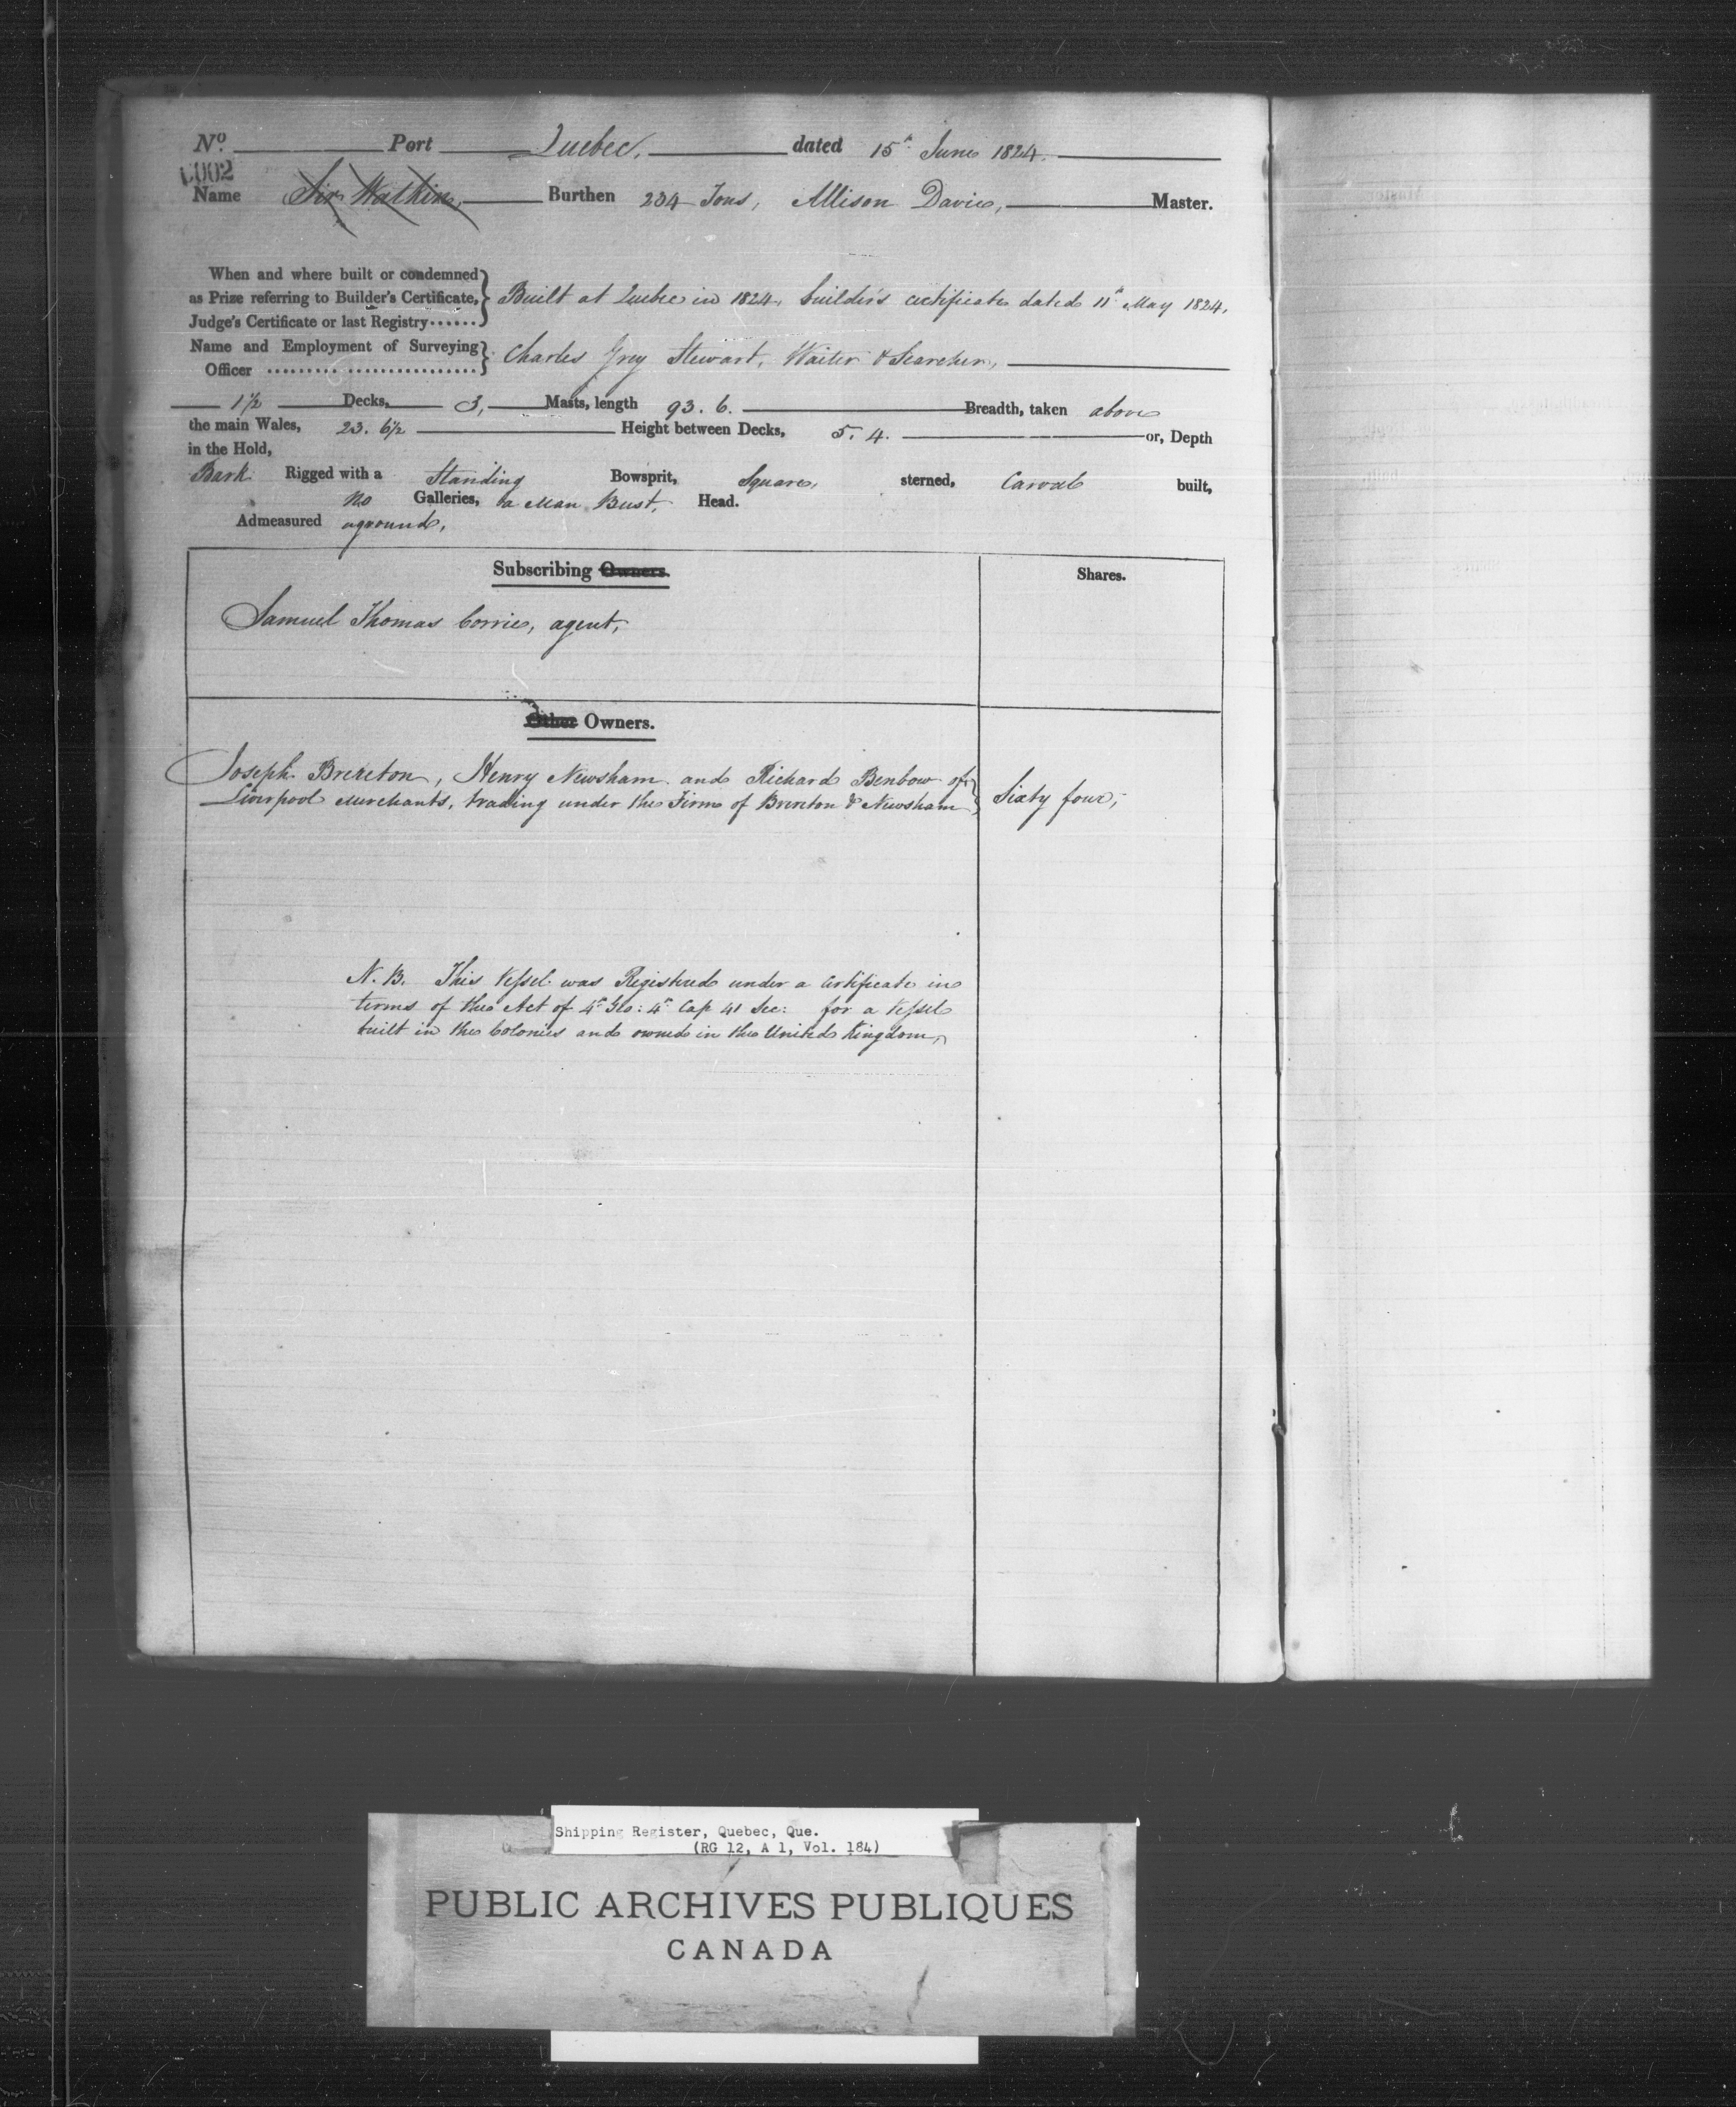 No. Port Quebec, dated 15th June 1824.
C002
Name Sir Watkin, Burthen 234 Tons, Allison Davies, Master.
When and where built or condemned
as Prize referring to Builder's Certificate, Built at Quebec in 1824, builder's certificate dated 11th May 1824,
Judge's Certificate or last Registry......
Name and Employment of Surveying Charles Grey Stewart, Waiter & Searcher,
Officer
1½ Decks, 3, Masts, length 93. 6. Breadth, taken above
the main Wales, 23. 6½ Height between Decks, 5. 4. or, Depth
in the Hold,
Bark Rigged with a Standing Bowsprit, Square, sterned, Carvel built,
No Galleries, a Man Bust, Head.
Admeasured aground,
Subscribing Owners. Shares.
Samuel Thomas Corrie, agent,
Other Owners.
Joseph Brereton, Henry Newsham and Richard Benbow of
Liverpool Merchants, trading under the Firm of Brereton & Newsham Sixty four,
N.B. This Vessel was Registered under a Certificate in
terms of the Act of 4th Geo: 4th Cap 41 Sec: for a Vessel
built in the Colonies and owned in the United Kingdom,
Shipping Register, Quebec, Que.
(RG 12, A 1, Vol. 184)
PUBLIC ARCHIVES PUBLIQUES
CANADA